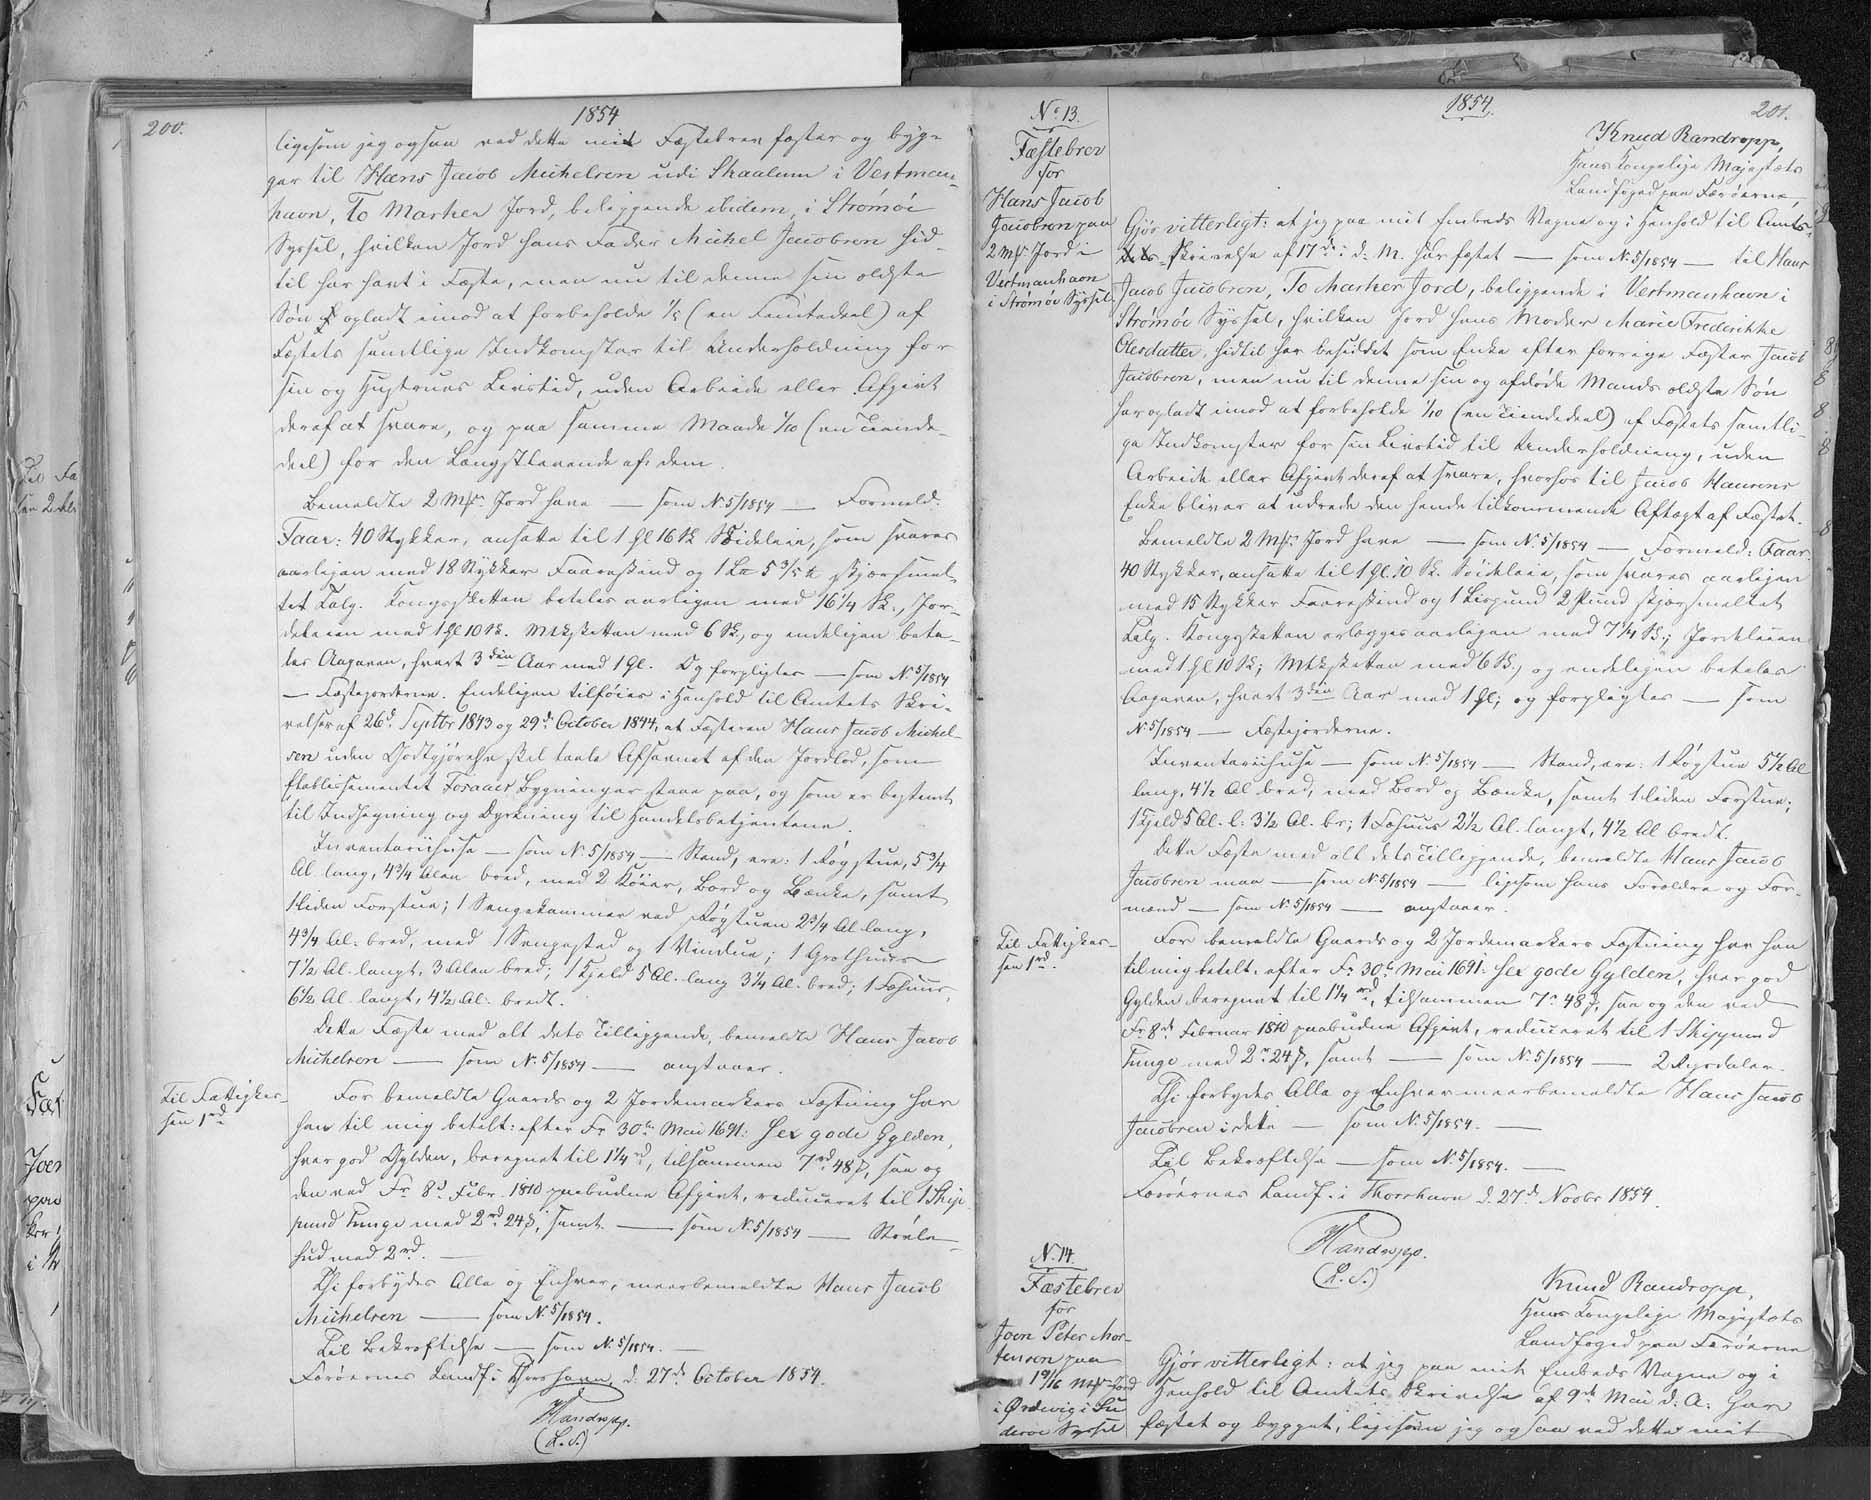 200.
1854
ligesom jeg ogsaa ved dette mit Fæstebrev fæster og byg-
ger til Hans Jacob Michelsen udi Skaalum i Vestman-
havn, To Marker Jord, beliggende ibidem, i Strømøe
Syssel, hvilken Jord hans Fader Michel Jacobsen hid-
til har havt i Fæste, men nu til denne sin ældste
Søn opladt imod at forbeholde 1/5 (en Femtedeel) af
Fæstets samtlige Indkomster til Underholdning for
sin og Hustrues Livstid, uden Arbeide eller Afgivt
deraf at svare, og paa samme Maade 1/10 (en Tiende-
deel) for den Længstlevende af dem.
Bemeldte 2 Mkr Jord have — som N. 5/1854 — Formeld.
Faar: 40 Stykker, ansatte til 1 Gl 16 Sk Søideleie, som svares
aarligen med 18 Stykker Faareskind og 1 L℔ 5 3/5 ℔ skjærsmel-
tet Talg. Kongsskatten betales aarligen med 16 1/4 Sk., Jor-
deleien med 1 Gl 10 Sk. Mtkskatten med 6 Sk., og endeligen beta-
les Aagaven, hvert 3die Aar med 1 Gl. Og forpligtes — som N. 5/1854
— Fæstejorderne. Endeligen tilføies i Henhold til Amtets Skri-
velser af 26d Septbr 1843 og 29d October 1844, at Fæsteren Hans Jacob Michel-
sen uden Godtgjørelse skal taale Afsavnet af den Jordlod, som
Etablissementet Fosaaes Bygninger staae paa, og som er bestemt
til Indhegning og Dyrkning til Handelsbetjentene.
Inventariihuse — som N. 5/1854 — Stand, ere: 1 Røgstue, 5 3/4
Al lang, 4 3/4 Alen bred, med 2 Køier, Bord og Bænke, samt
1 liden Forstue; 1 Sengekammer ved Røgstuen 2 3/4 Al lang,
4 3/4 Al. bred, med 1 Sengested og 1 Vindue; 1 Grothuus
7 1/2 Al. langt, 3 Alen bred; 1 Hjeld 5 Al. lang 3 1/4 Al. bred; 1 Fæhuus,
6 1/2 Al langt, 4 1/2 Al. bredt.
Dette Fæste med alt dets Tilliggende, bemeldte Hans Jacob
Michelsen — som N. 5/1854 — angaaer.
Til Fattigkas-
sen 1 rd
For bemeldte Gaards og 2 Jordemarkers Fæstning har
han til mig betalt: efter Fr 30te Mai 1691: Sex gode Gylden,
hver god Gylden, beregnet til 1 1/4 rd, tilsammen 7 rd 48 ß, saa og
den ved Fr 8d Febr. 1810 paabudne Afgivt, reduceret til 1 Skip-
pund Tunge med 2 rd 24 ß, samt — som N. 5/1854 — Støvle-
hud med 2 rd. —
Thi forbydes Alle og Enhver, meerbemeldte Hans Jacob
Michelsen — som N. 5/1854.
Til Bekræftelse — som N. 5/1854. —
Færøernes Landf. i Thorshavn d. 27d October 1854.
HRandropp.
(L.S.)
1854.
201.
N. 13.
Fæstebrev
for
Hans Jacob
Jacobsen paa
2 Mkr. Jord i
Vestmanhavn
i Strømøe Syssel.
Knud Randropp,
Hans Kongelige Majestæts
Landfoged paa Færøerne,
Gjør vitterligt: at jeg paa mit Embeds Vegne og i Henhold til Amts-
Skrivelse af 17de d. M. har fæstet — som N. 5/1854 — til Hans
Jacob Jacobsen, To Marker Jord, beliggende i Vestmanhavn i
Strømøe Syssel, hvilken Jord hans Moder Marie Frederikke
Olesdatter, hidtil har besiddet som Enke efter forrige Fæster Jacob
Jacobsen, men nu til denne sin og afdøde Mands ældste Søn
har opladt imod at forbeholde 1/10 (en Tiendedeel) af Fæstets samtli-
ge Indkomster for sin Livstid til Underholdning, uden
Arbeide eller Afgivt deraf at svare, hvorhos til Jacob Hansens
Enke bliver at udrede den hende tilkommende Aftægt af Fæstet.
Bemeldte 2 Mkr Jord have — som N. 5/1854 — Formeld: Faar
40 Stykker, ansatte til 1 Gl. 10 Sk. Søideleie, som svares aarligen
med 15 Stykker Faareskind og 1 Lispund 2 Pund skjærsmeltet
Talg. Kongsskatten erlægges aarligen med 7 1/4 Sk.; Jordeleien
med 1 Gl 10 Sk; Mtkskatten med 6 Sk., og endeligen betales
Aagaven, hvert 3die Aar med 1 Gl; og forpligtes — som
N. 5/1854 — Fæstejorderne.
Inventariihuse — som N. 5/1854 — Stand, ere: 1 Røgstue 5 1/2 Al
lang, 4 1/2 Al bred, med Bord og Bænke, samt 1 liden Forstue;
1 Hjeld 5 Al. l. 3 1/2 Al. br; 1 Fæhuus 2 1/2 Al. langt, 4 1/2 Al bredt.
Dette Fæste med alt dets Tilliggende, bemeldte Hans Jacob
Jacobsen maa — som N. 5/1854 — ligesom hans Forældre og For-
mænd — som N. 5/1854 — angaaer.
Til Fattigkas-
sen 1 rd.
For bemeldte Gaards og 2 Jordemarkers Fæstning har han
til mig betalt: efter Fr. 30te Mai 1691: Sex gode Gylden, hver god
Gylden beregnet til 1 1/4 rd, tilsammen 7 rd 48 ß, saa og den ved
Fr. 8de Februar 1810 paabudne Afgivt, reduceret til 1 Skippund
Tunge med 2 rd 24 ß, samt — som N. 5/1854 — 2 Rigsdaler.
Thi forbydes Alle og Enhver meerbemeldte Hans Jacob
Jacobsen i dette — som N. 5/1854. —
Til Bekræftelse — som N. 5/1854. —
Færøernes Landf. i Thorshavn d. 27d Novbr 1854.
HRandropp.
(L.S.)
N. 14.
Fæstebrev
for
Joen Peter Mor-
tensen paa
1 9/16 Mkr Jord
i Ørdevig i Su-
derøe Syssel
Knud Randropp,
Hans Kongelige Majestæts
Landfoged paa Færøerne
Gjør vitterligt: at jeg paa mit Embeds Vegne og i
Henhold til Amtets Skrivelse af 9de Mai d. A. har
fæstet og bygget, ligesom jeg ogsaa ved dette mit